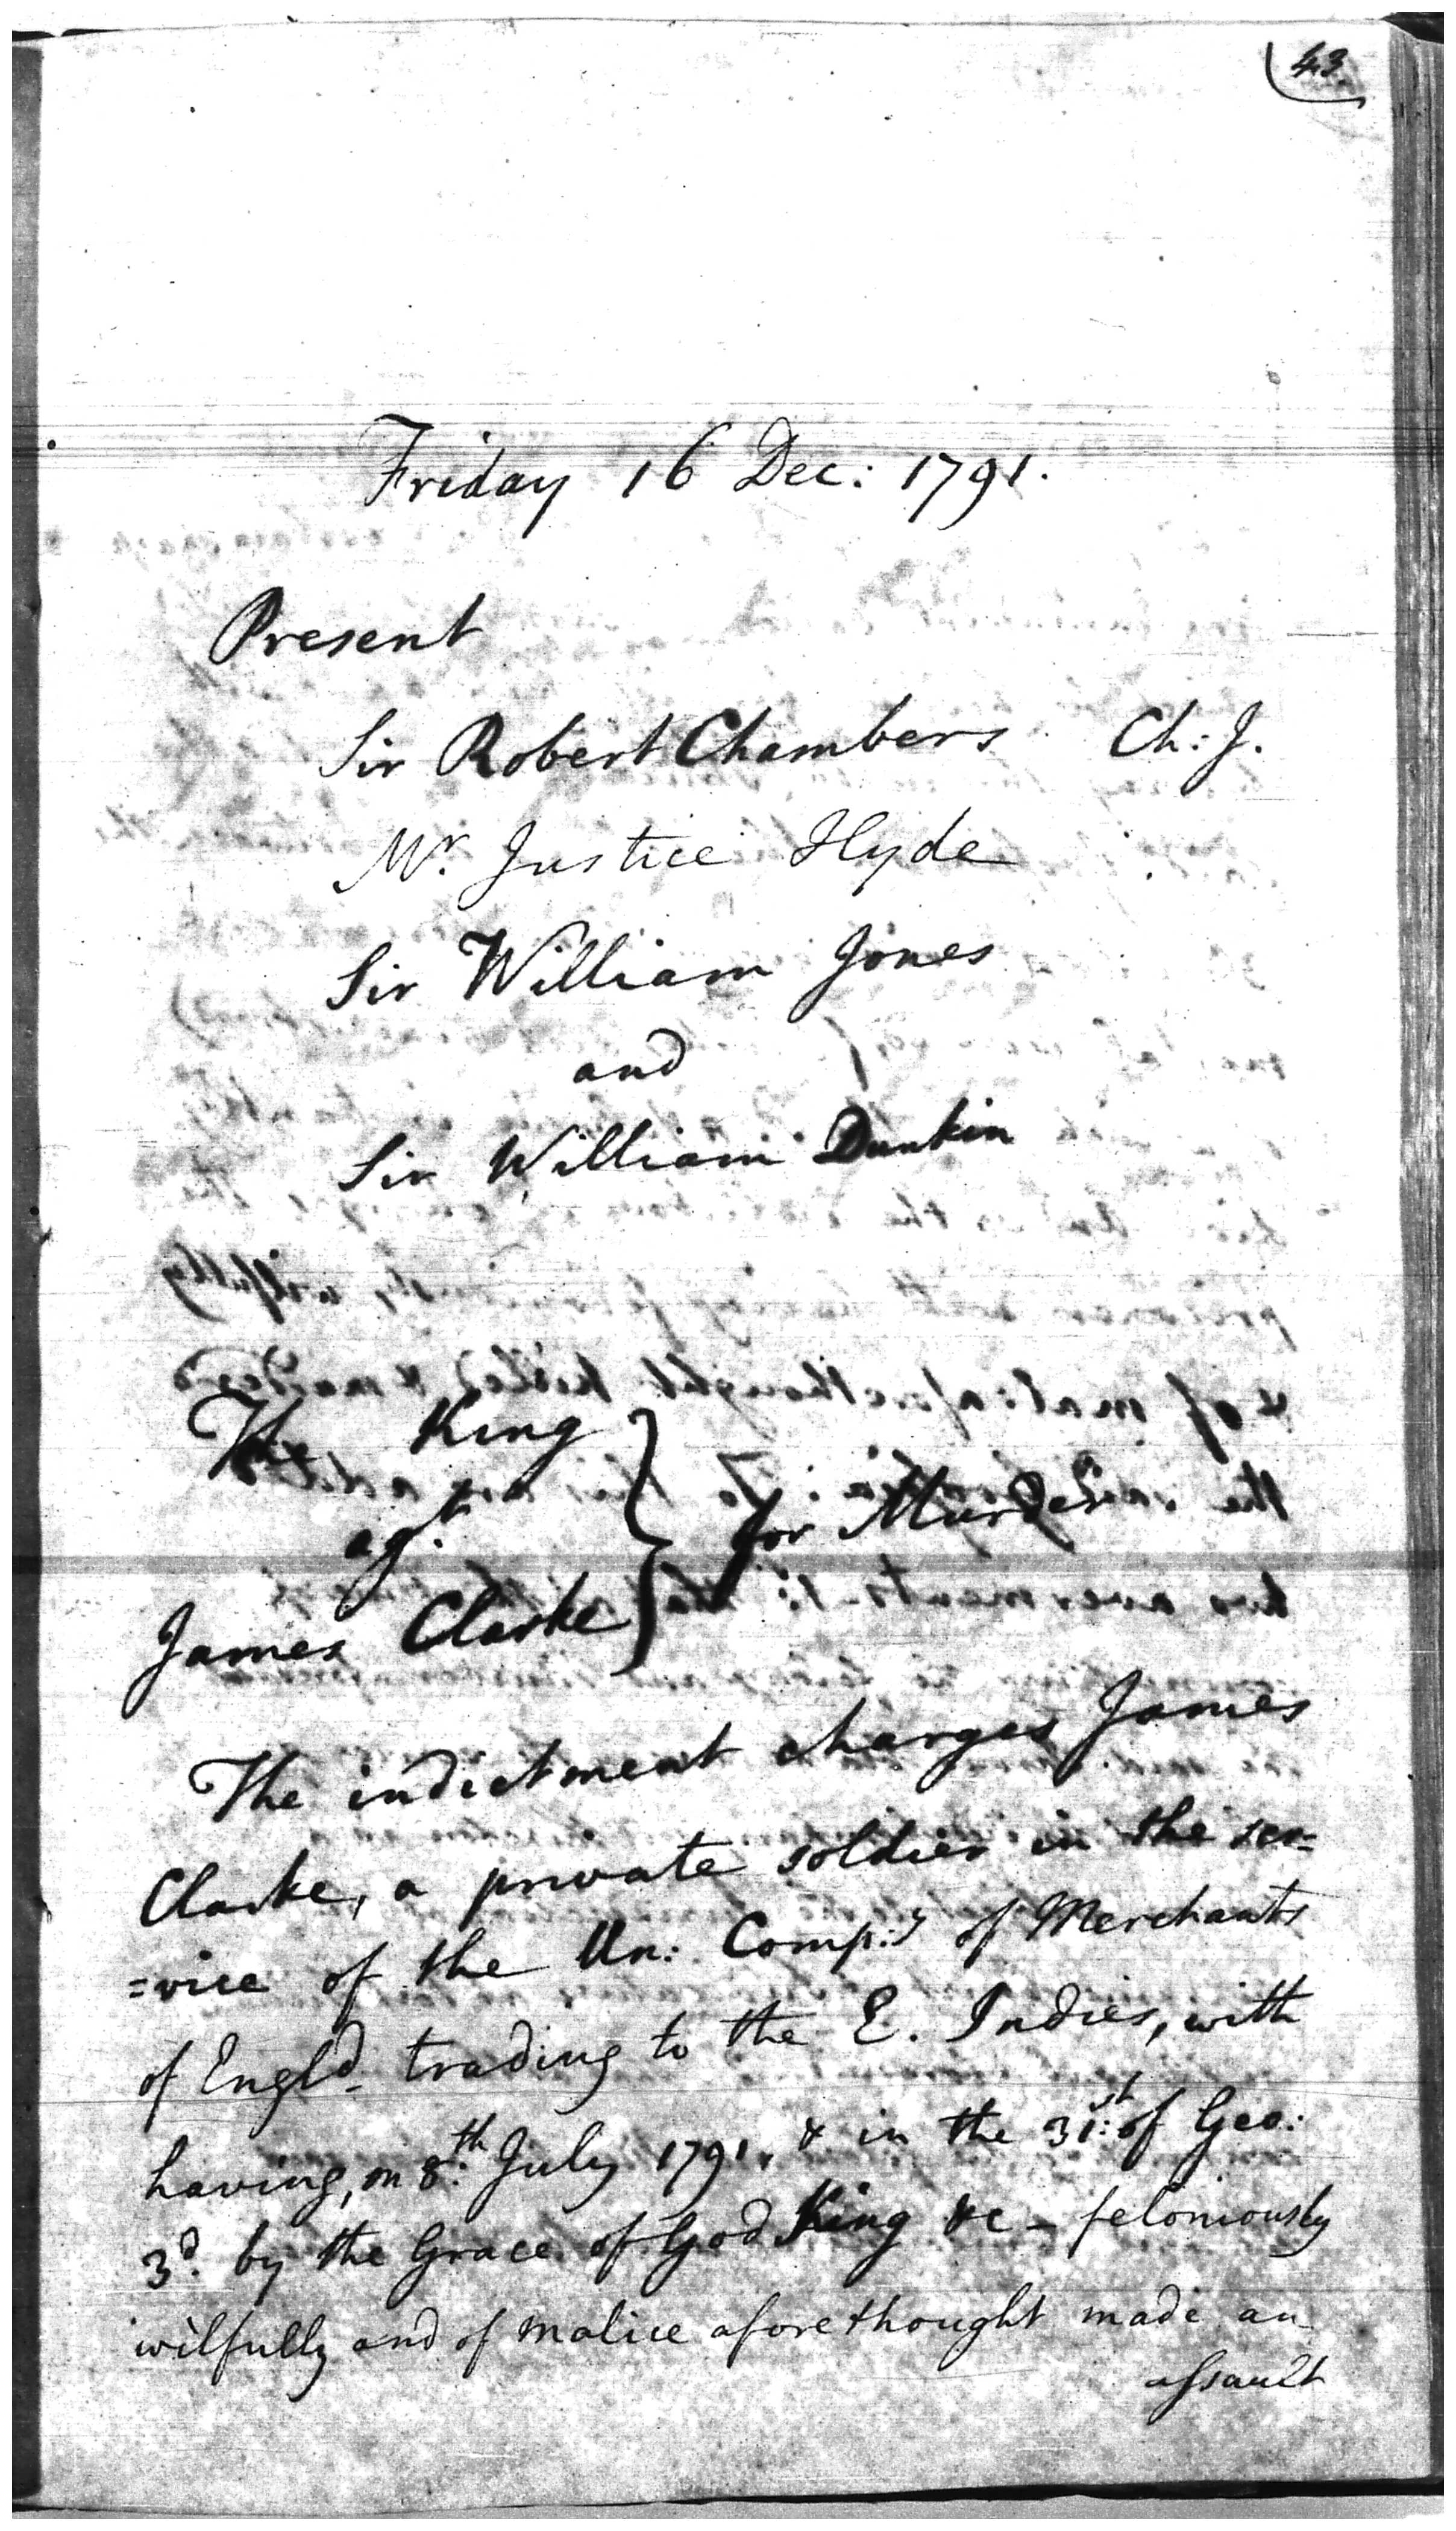 43.
Friday 16 Dec: 1791.
Present
Sir Robert Chambers Ch: J.
Mr. Justice Hyde
Sir William Jones
and
Sir William Dunkin
The King
agt.
James Clarke
for Murder
The indictment charges James
Clarke, a private soldier in the ser=
=vice of the Un: Comp:y of Merchants
of Engld. trading to the E. Indies, with
having, on 8:th July 1791, & in the 31:st of Geo:
3d. by the Grace of God King &c - feloniously
wilfully and of malice aforethought made an
assault